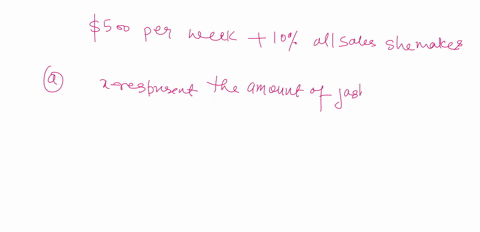 $500 per week + 10% all sales she makes
(a) x represent the amount of